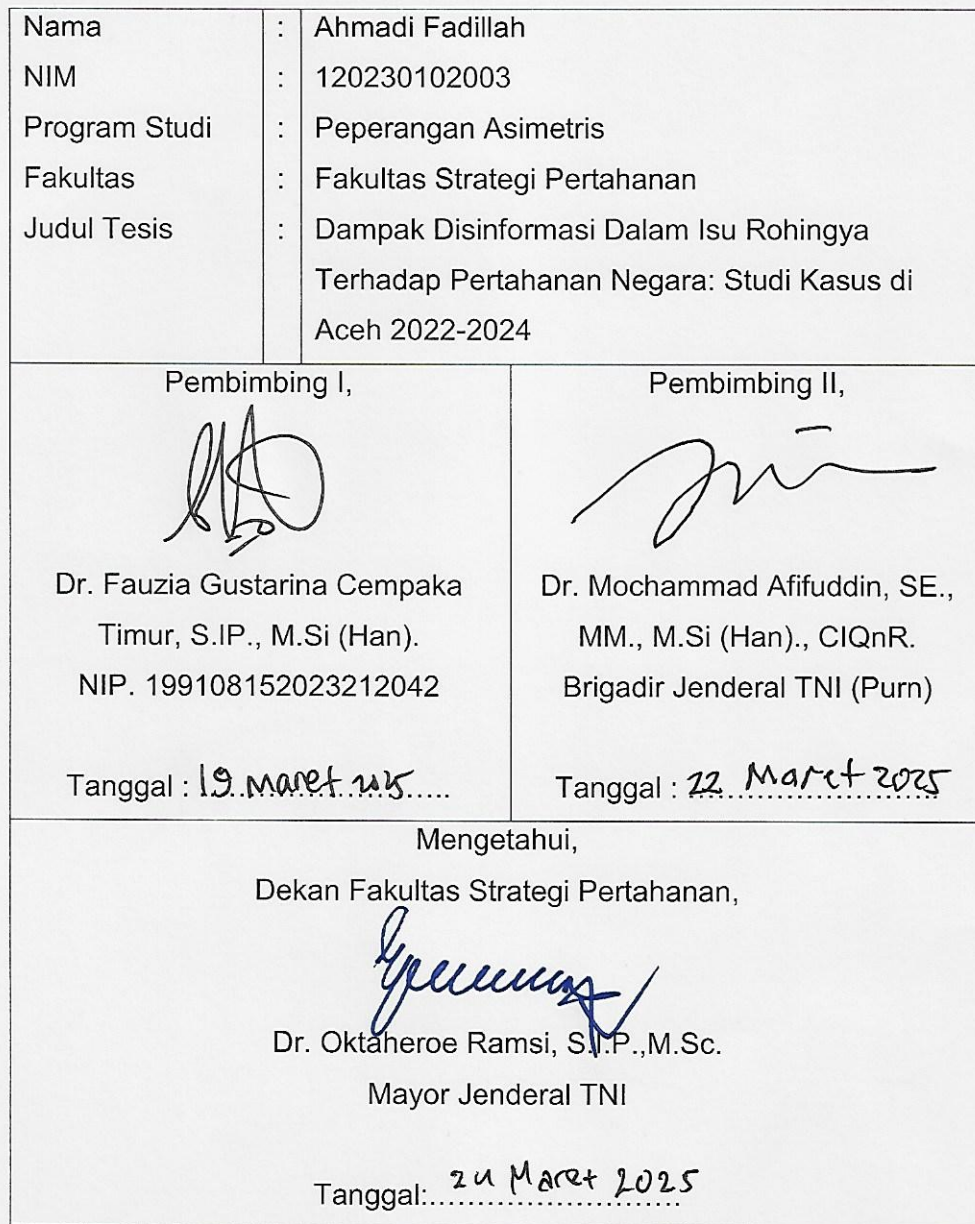 Nama : Ahmadi Fadillah
NIM : 120230102003
Program Studi : Peperangan Asimetris
Fakultas : Fakultas Strategi Pertahanan
Judul Tesis : Dampak Disinformasi Dalam Isu Rohingya
Terhadap Pertahanan Negara: Studi Kasus di
Aceh 2022-2024
Pembimbing I,
Dr. Fauzia Gustarina Cempaka
Timur, S.IP., M.Si (Han).
NIP. 199108152023212042
Tanggal : 19 Maret 2025
Pembimbing II,
Dr. Mochammad Afifuddin, SE.,
MM., M.Si (Han)., CIQnR.
Brigadir Jenderal TNI (Purn)
Tanggal : 22 Maret 2025
Mengetahui,
Dekan Fakultas Strategi Pertahanan,
Dr. Oktaheroe Ramsi, S.I.P.,M.Sc.
Mayor Jenderal TNI
Tanggal: 24 Maret 2025